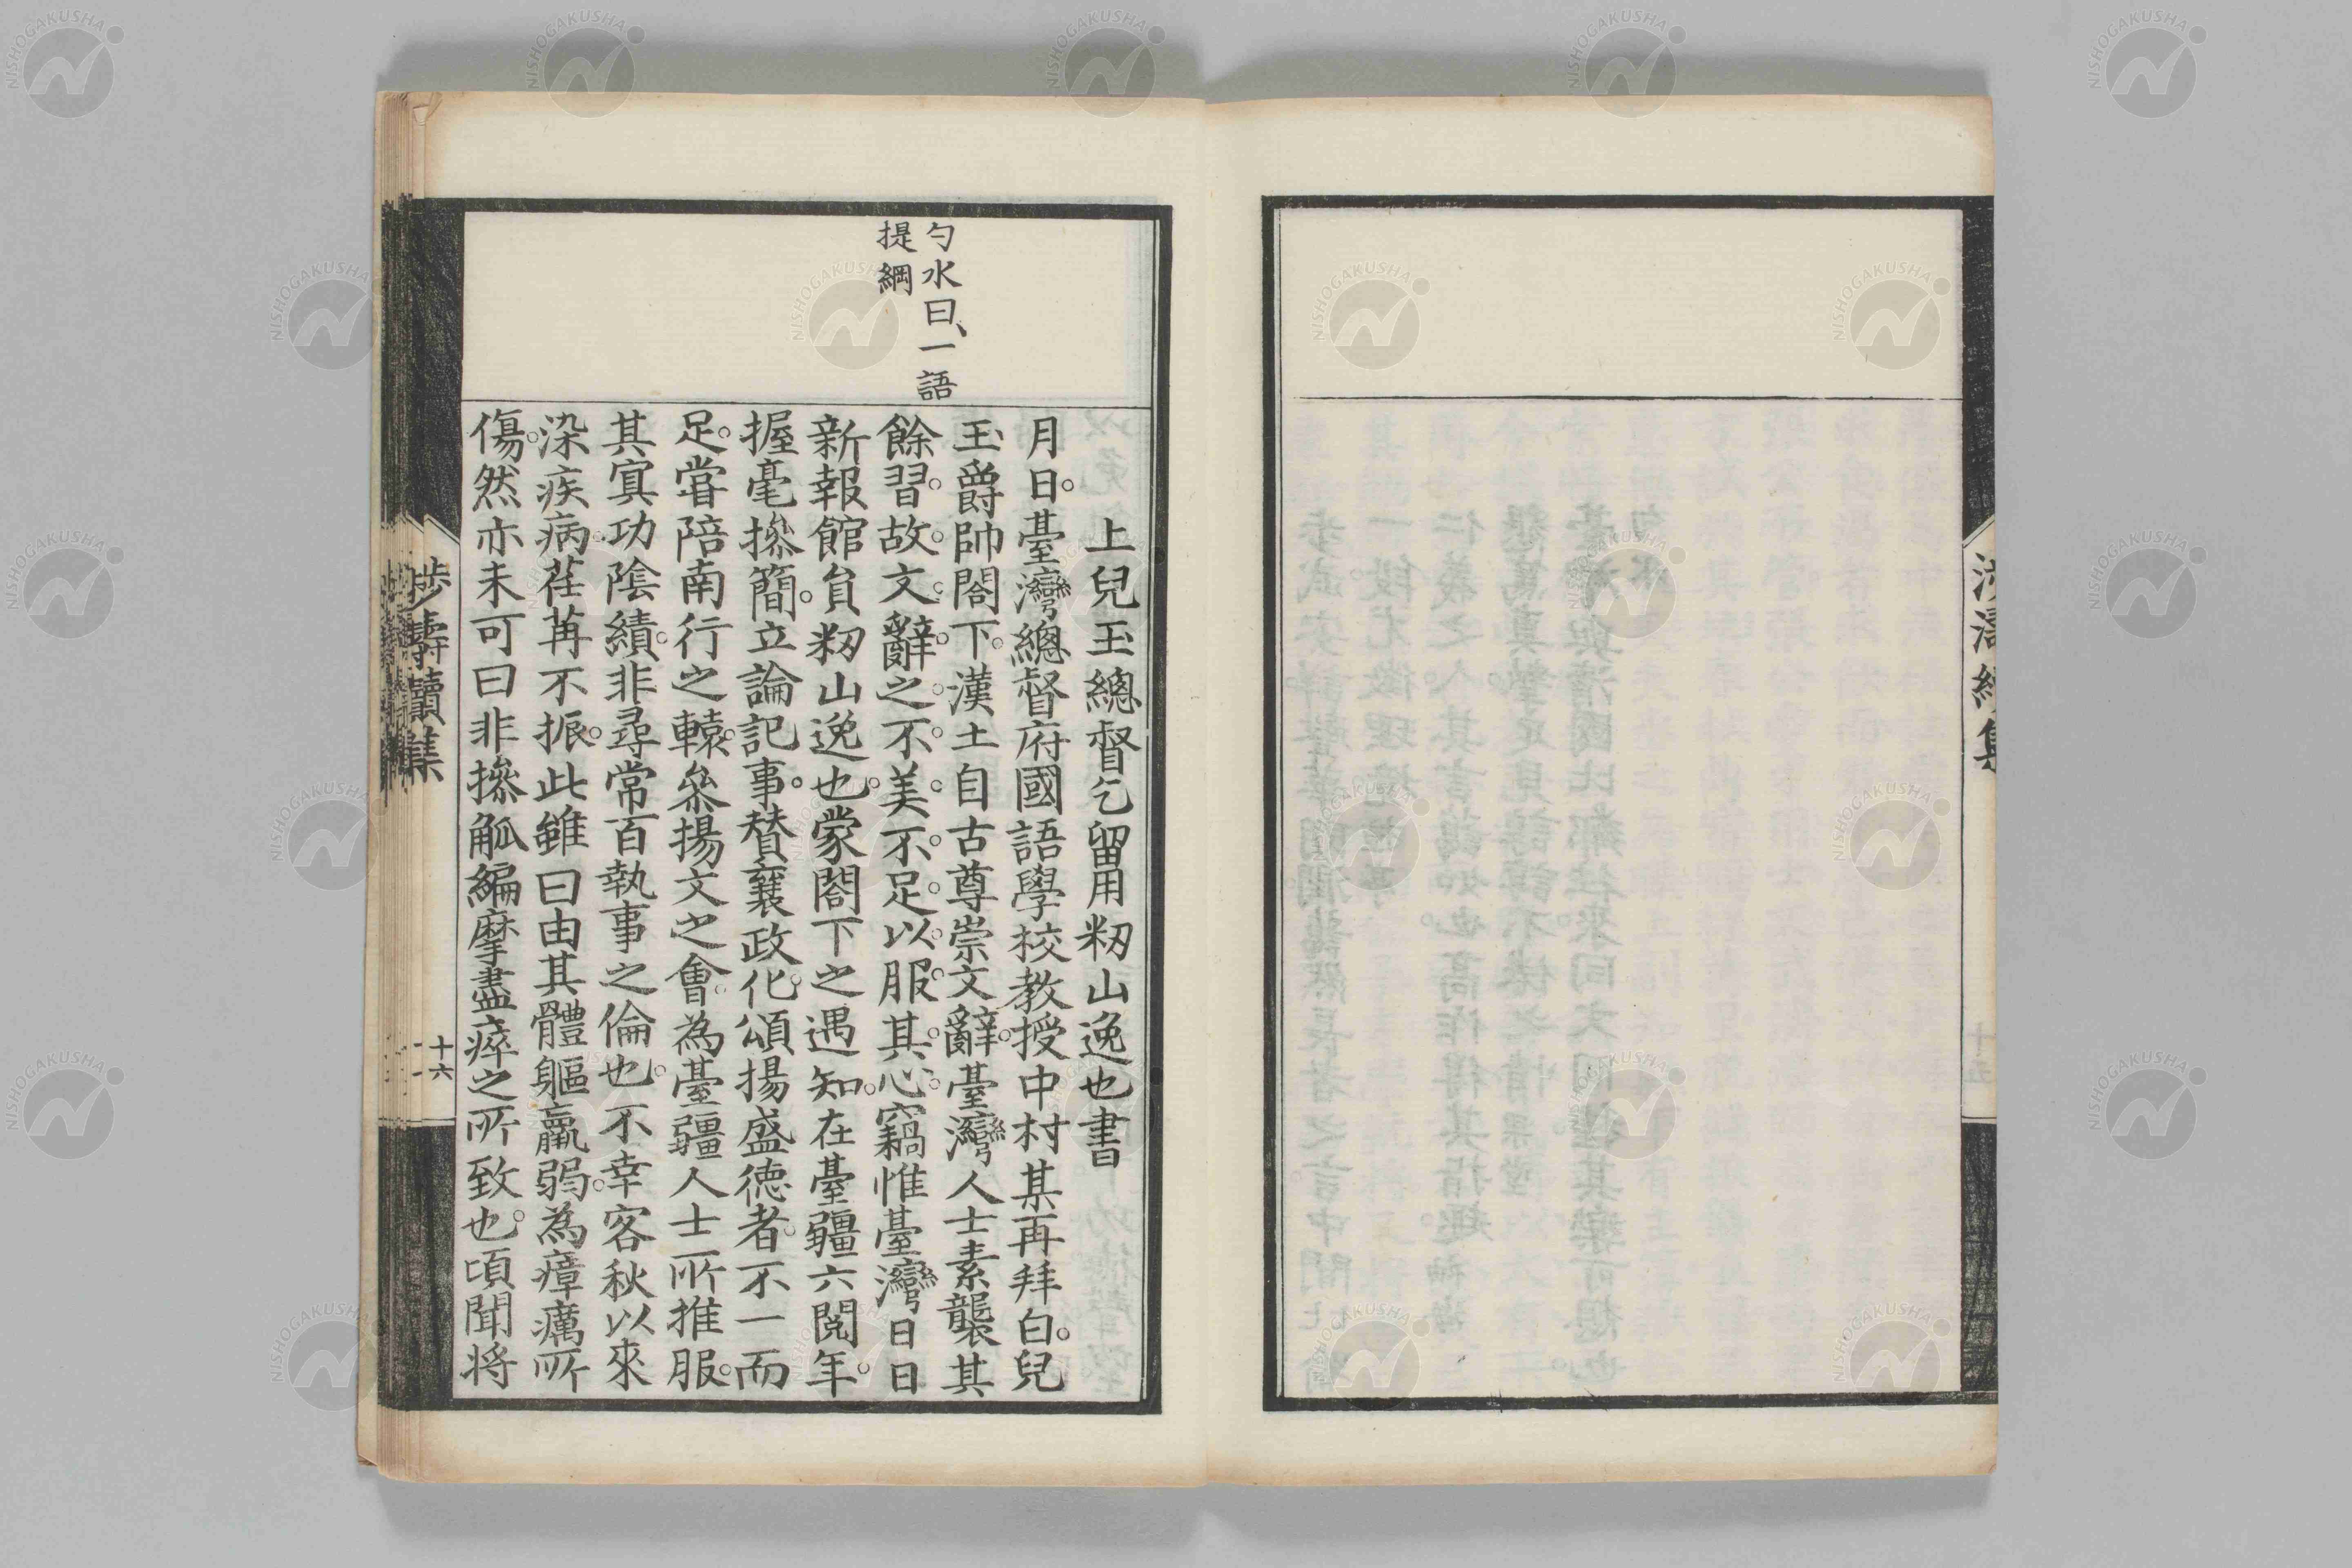 上兒玉總督乞留用籾山逸也書
月日。臺灣總督府國語學校教授中村某再拜白。兒
玉爵帥閤下。漢土自古尊崇文辭。臺灣人士素襲其
餘習。故文辭之不美不足以服其心。竊惟臺灣日日
新報館員籾山逸也。蒙閤下之遇知。在臺疆六閱年。
握毫摻簡。立論記事。賛襄政化。頌揚盛德者。不一而
足。嘗陪南行之轅。叅揚文之會。為臺疆人士所推服。
其寘功陰績。非尋常百執事之倫也。不幸客秋以來
染疾病。荏苒不振。此雖曰由其體軀羸弱。為瘴癘所
傷。然亦未可曰非摻觚編摩盡瘁之所致也。頃聞將
勺水曰、一語
提綱
涉濤續集
十六